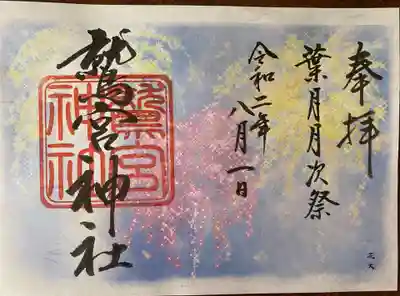 奉拝
葉月月次祭
令和二年
八月一日
鷲宮神社
鷲宮
神社